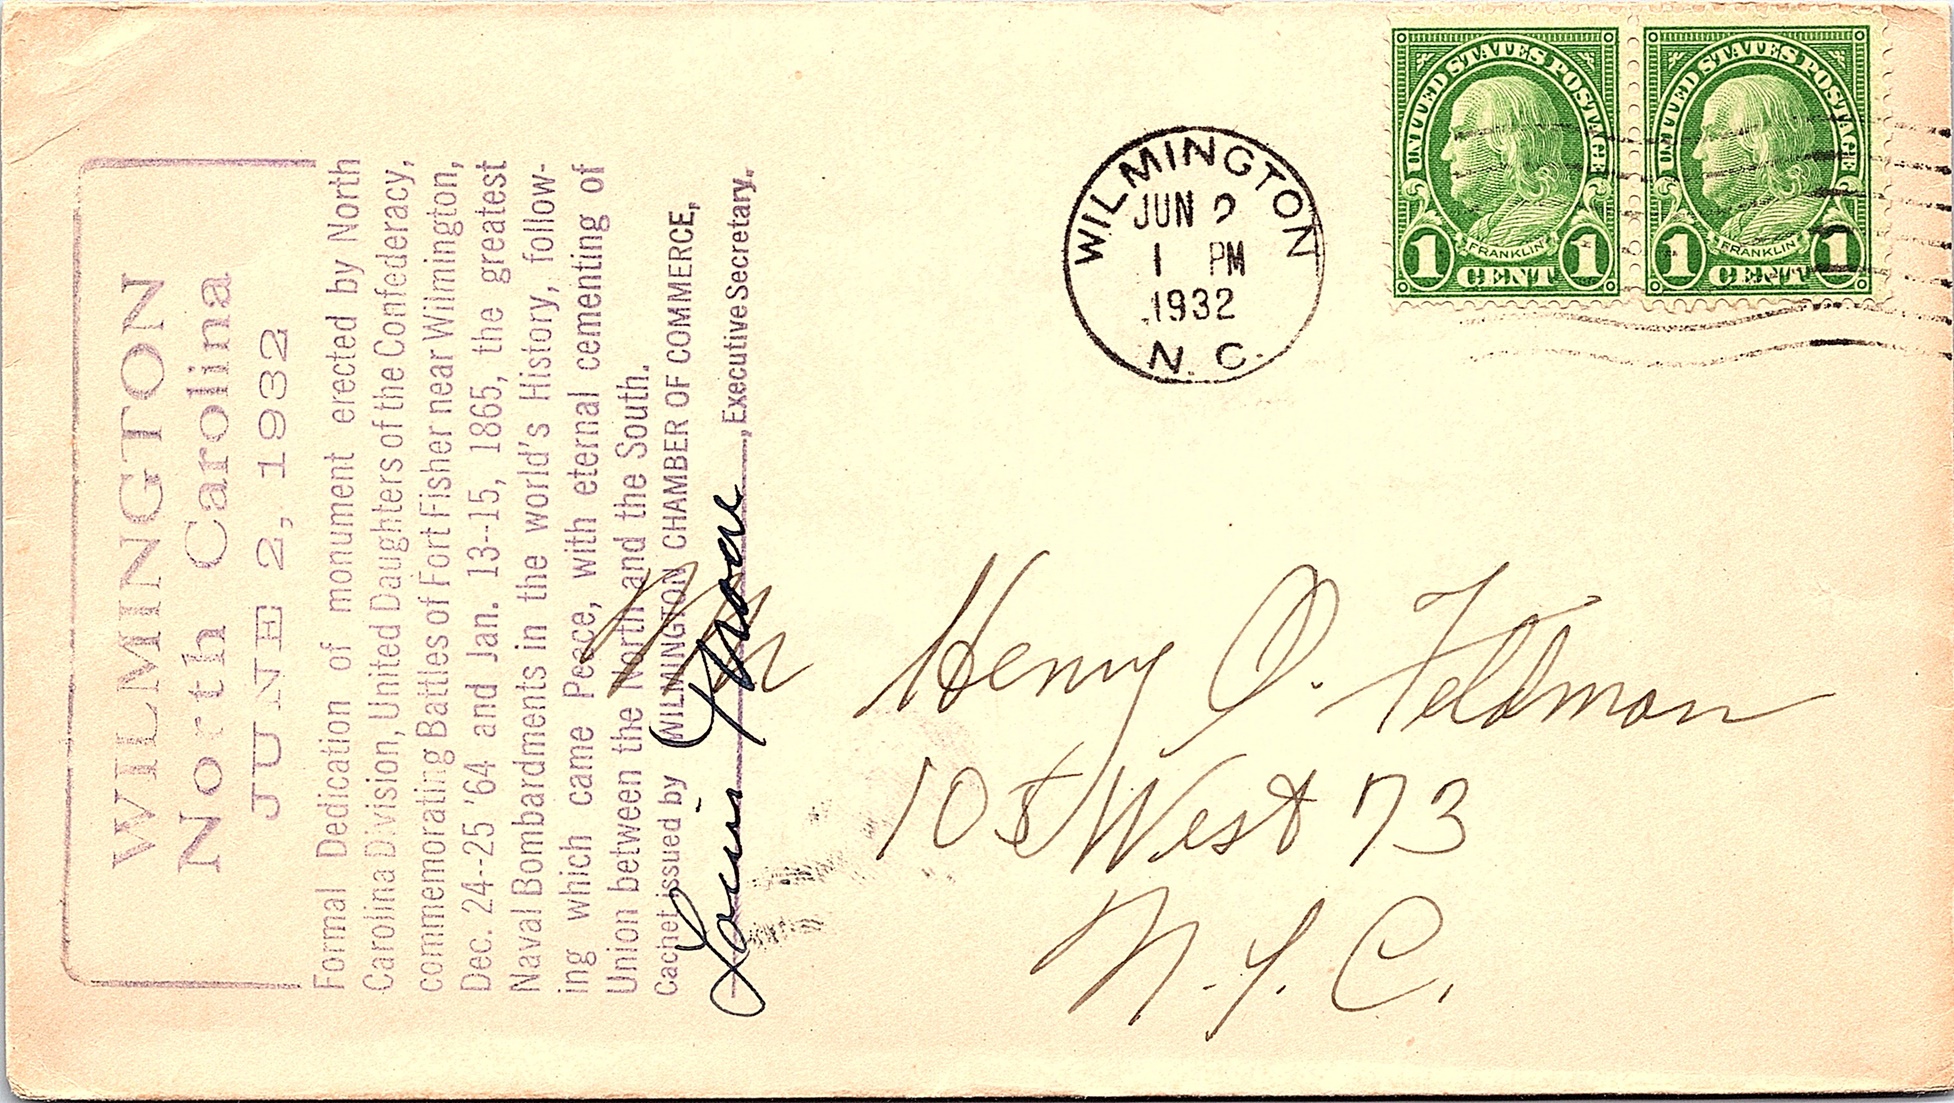 WILMINGTON
North Carolina
JUNE 2, 1932
Formal Dedication of monument erected by North
Carolina Division, United Daughters of the Confederacy,
commemorating Battles of Fort Fisher near Wilmington,
Dec. 24--25 '64 and Jan. 13--15, 1865, the greatest
Naval Bombardments in the world's History, follow-
ing which came Peace, with eternal cementing of
Union between the North and the South.
Cachet issued by WILMINGTON CHAMBER OF COMMERCE,
Louis T. Moore, Executive Secretary.
WILMINGTON
JUN 2
1 PM
1932
N. C.
UNITED STATES POSTAGE
FRANKLIN
1 CENT 1
UNITED STATES POSTAGE
FRANKLIN
1 CENT 1
Mr Henry O. Feldman
105 West 73
N.Y.C.